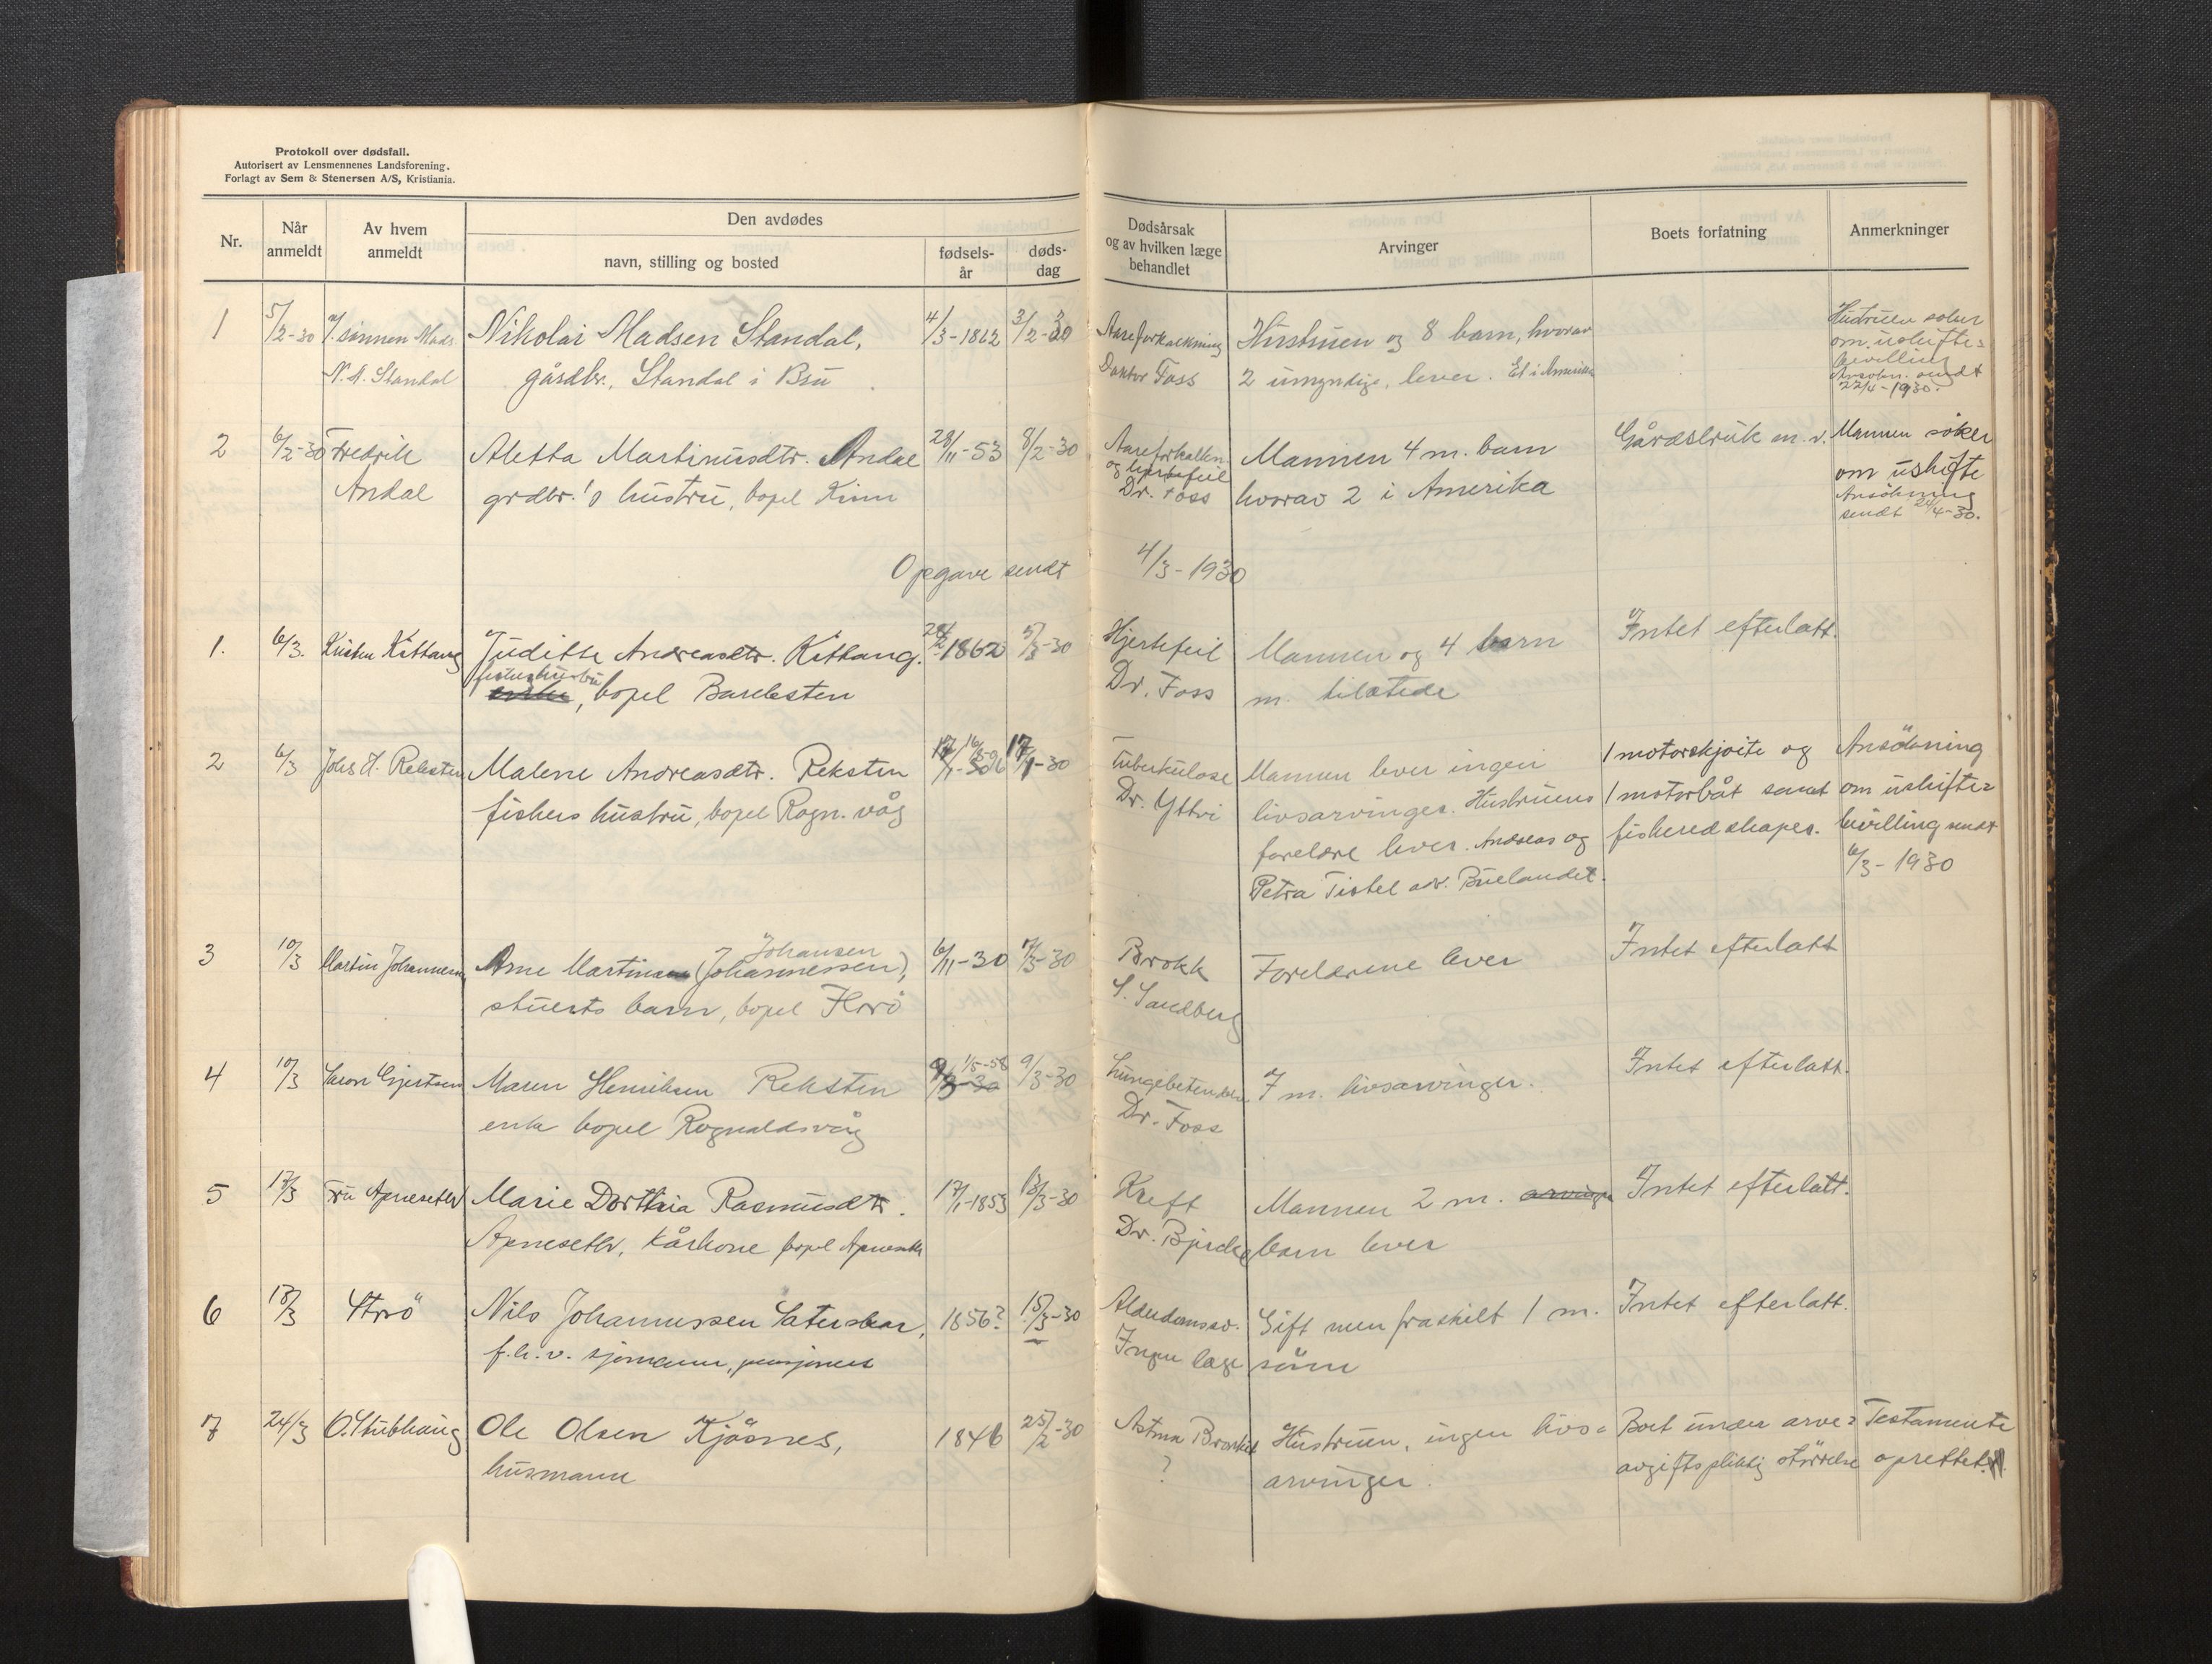 Protokoll over dødsfall.
Autorisert av Lensmennenes Landsforening.
Forlagt av Sem & Stenersen A/S, Kristiania.
Nr.
Når anmeldt
Av hvem anmeldt
Den avdødes
navn, stilling og bosted
fødsels-år
døds-dag
Dødsårsak og av hvilken læge behandlet
Arvinger
Boets forfatning
Anmerkninger
1 5/2-30 v/ sønnen Mads Nikolai Madsen Standal, 4/3-1862 3/2-30 Aareforkalkning Hustruen og 8 barn, hvorav
N. Standal gårdbr., Standal i Bru Doktor Foss 2 umyndige, lever. Et i Amerika
Hustruen søker
om uskifte=
bevilling
Ansøkn. sendt
22/4-1930.
2 6/2-30 Fredrik Aletta Martinusdtr. Andal 28/11-53 8/2-30 Aareforkalkn. Mannen 4 m. barn Gårdsbruk m.v. Mannen söker
Andal grdbr.'s hustru, bopel Kinn og hjertefeil hvorav 2 i Amerika om uskifte
Dr. Foss
Ansökning
sendt 4-30.
Opgave sendt 4/3-1930
1. 6/3. Kristen Kittang Judithe Andreasdtr. Kittang. 1862 5/3-30 Hjertefeil Mannen og 4 barn Intet efterlatt.
, bopel Bareksten Dr. Foss m.
2 6/3 Johs H. Reksten Malene Andreasdtr. Reksten 17/1-30 Tuberkulose Mannen lever ingen 1 motorskjøite og Ansökning
fiskers hustru, bopel Rogn.våg Dr. Yttri livsarvinger. Hustruens 1 motorbåt samt om uskifte=
foreldre lever. Andreas og fiskeredskaper. bevilling sendt
Petra Tistel adr. Buelandet. 6/3-1930
3 10/3 Martin Johannessen Arne Martin (Johannessen), Johansen 6/11-30 7/3-30 Brokk Foreldrene lever Intet efterlatt
stuerts barn, bopel Florö S. Sandberg
4 10/3 Gjertsen Maren Henriksen Reksten 1/5-58 9/3-30 Lungebetendelse 7 m. livsarvinger. Intet efterlatt.
enke bopel Rognaldsvåg Dr. Foss
5 17/3 Fru Apneseth Marie Dorthea Rasmusdtr. 17/1-1853 13/3-30 Kreft Mannen 2 m. Intet efterlatt.
Apneseth, kårkone bopel Apneseth Dr. barn lever
6 18/3 Nils Johannessen 1856? 15/3-30 Alderdomssv. Gift men fraskilt 1 m. Intet efterlatt.
f.h.v. sjømann, Ingen læge sönn
7 24/3 O. Stubhaug Ole Olsen Kjåsnes, 1846 25/2-30 Astma Hustruen, ingen livs= Boet under arve= Testamente
husmann ? arvinger. avgiftspliktig störrelse oprettet.